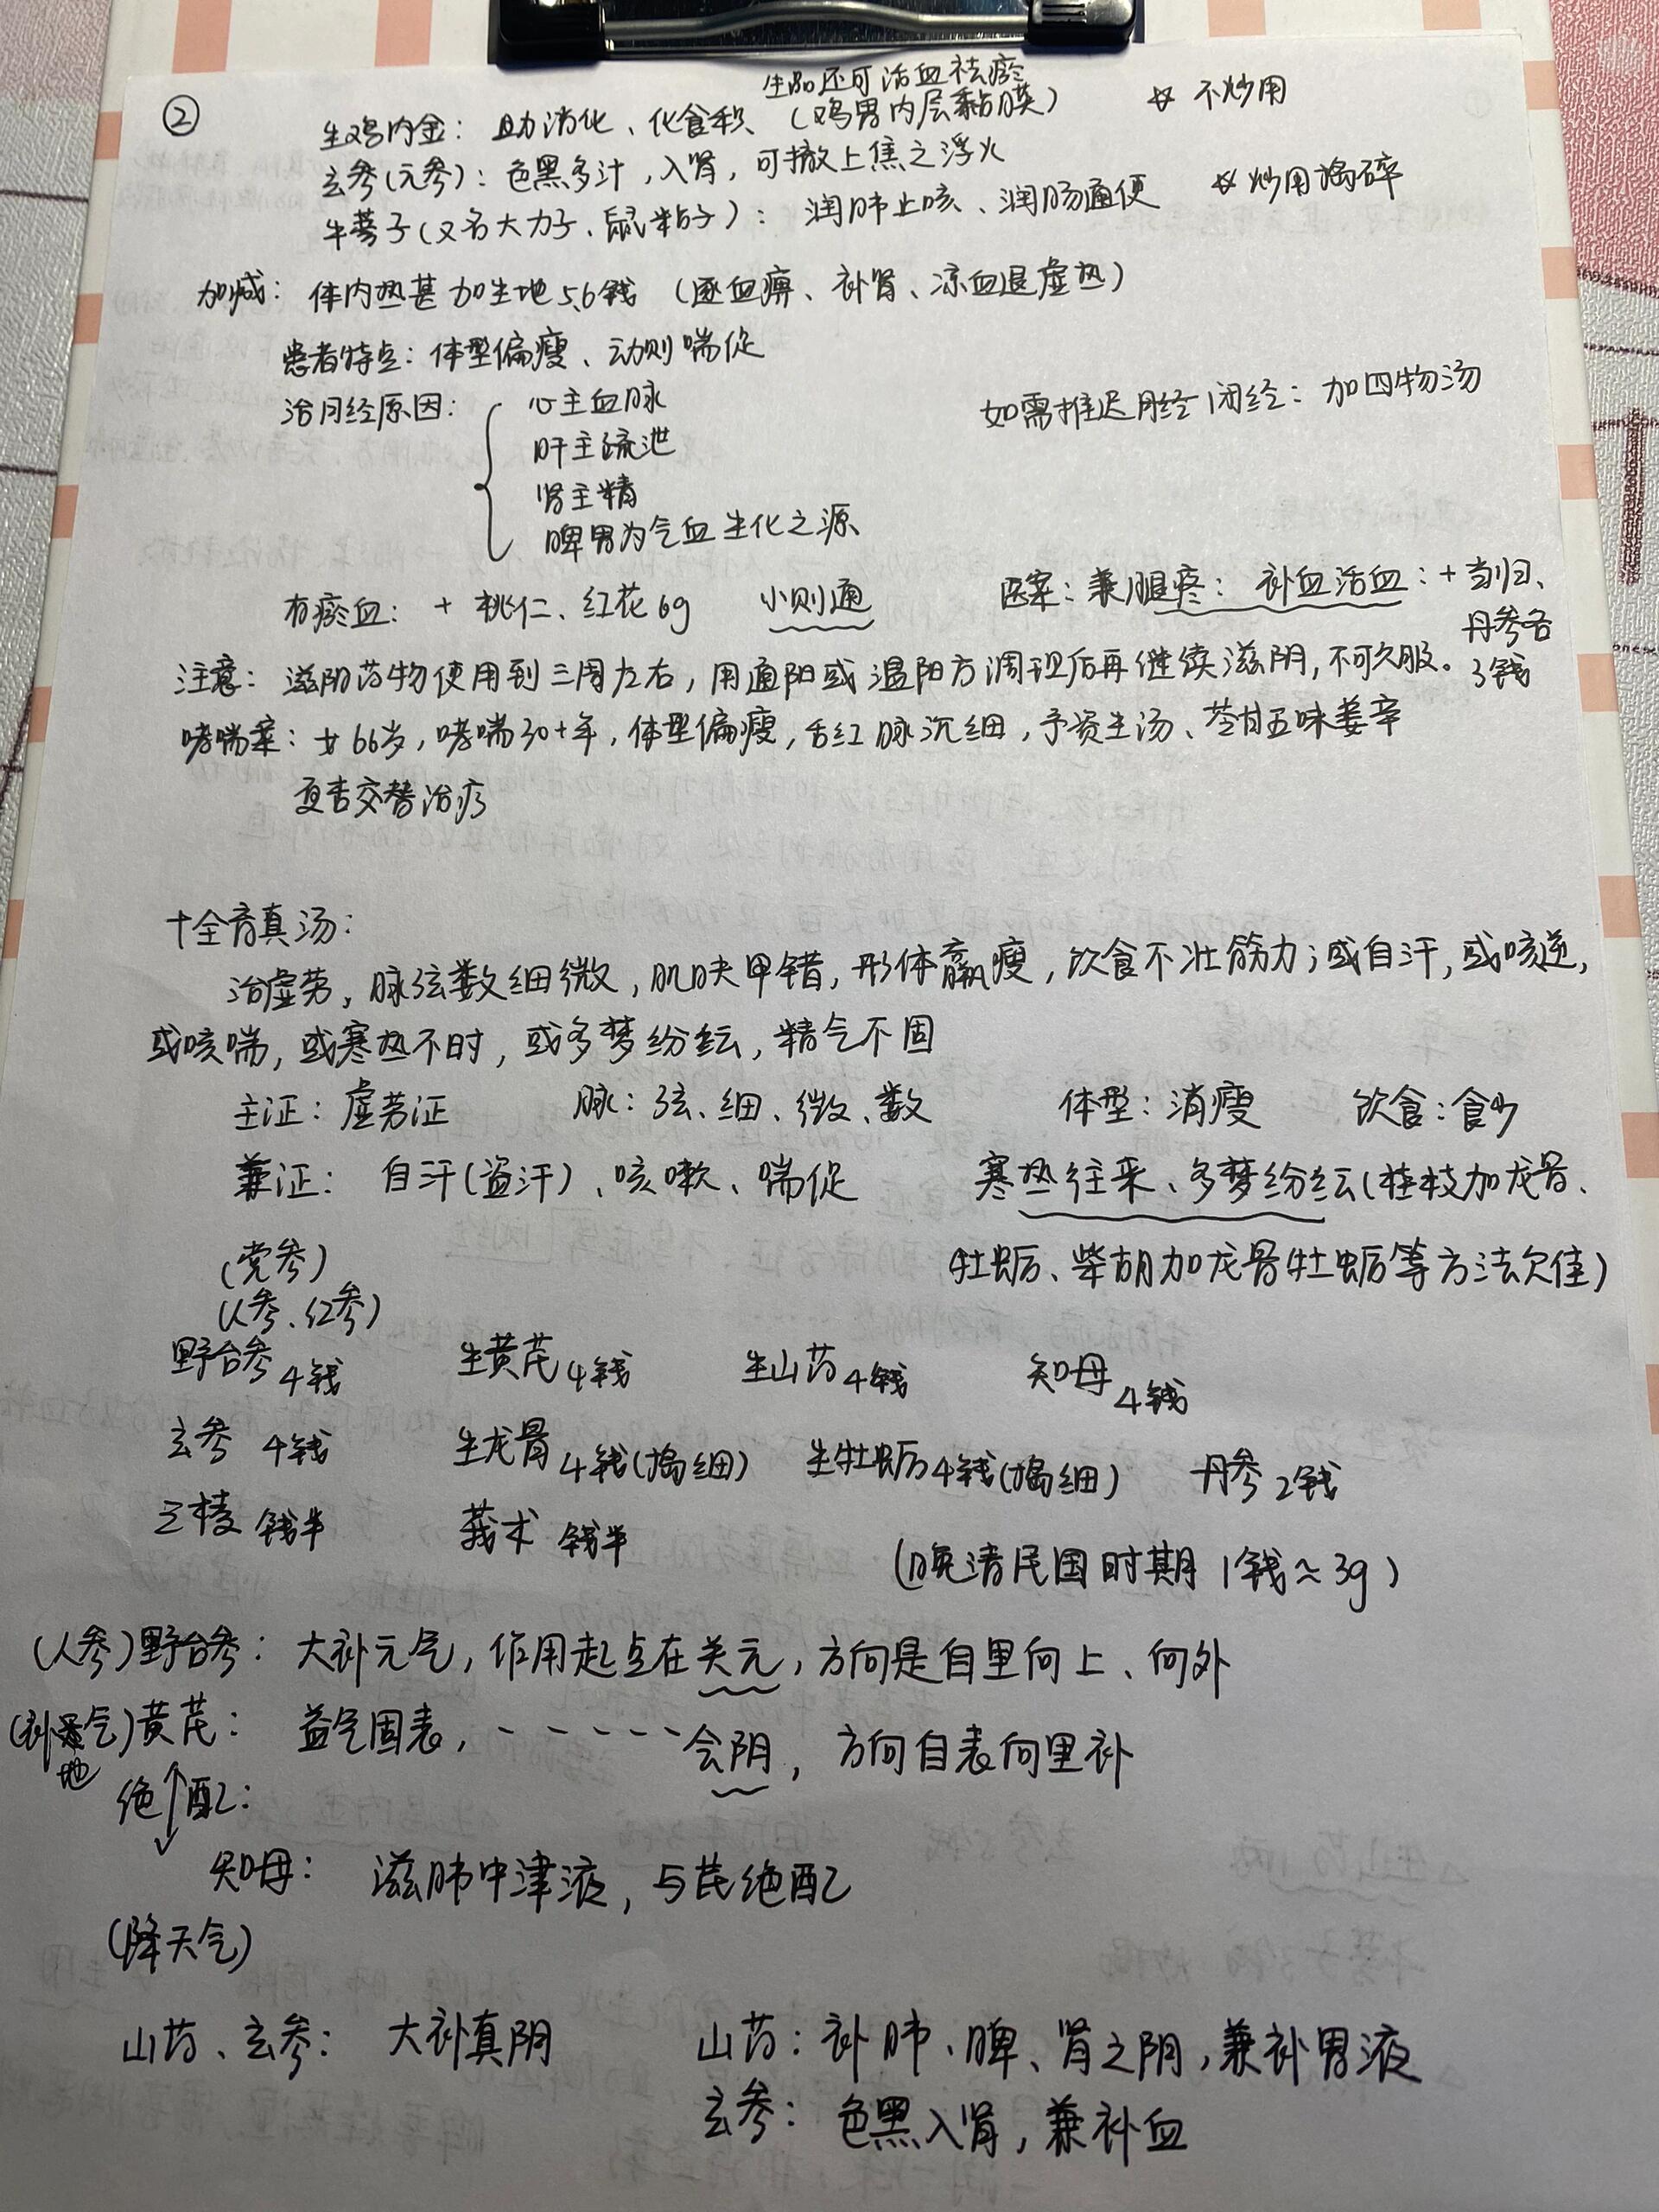 ②
生品还可活血祛瘀
生鸡内金：助消化、化食积、（鸡胃内层黏膜） ☆ 不炒用
玄参(元参)：色黑多汁，入肾，可撤上焦之浮火
牛蒡子(又名大力子、鼠粘子)：润肺止咳、润肠通便 ☆ 炒用捣碎
加减：体内热甚加生地5、6钱（逐血痹、补肾、凉血退虚热）
患者特点：体型偏瘦、动则喘促
治月经原因：
心主血脉
肝主疏泄
肾主精
脾胃为气血生化之源
如需推迟月经闭经：加四物汤
有瘀血：+ 桃仁、红花6g 小则通
医案：兼腿疼：补血活血：+当归、
丹参各
3钱
注意：滋阴药物使用到三周左右，用通阳或温阳方调理后再继续滋阴，不可久服。
哮喘案：女66岁，哮喘30+年，体型偏瘦，舌红脉沉细，予资生汤、苓甘五味姜辛
夏杏交替治疗
十全育真汤：
治虚劳，脉弦数细微，肌肤甲错，形体羸瘦，饮食不壮筋力；或自汗，或咳逆，
或咳喘，或寒热不时，或多梦纷纭，精气不固
主证：虚劳证 脉：弦、细、微、数 体型：消瘦 饮食：食少
兼证：自汗(盗汗)、咳嗽、喘促 寒热往来、多梦纷纭(桂枝加龙骨、
牡蛎、柴胡加龙骨牡蛎等方法欠佳)
(党参)
(人参、红参)
野台参4钱 生黄芪4钱 生山药4钱 知母4钱
玄参 4钱 生龙骨4钱(捣细) 生牡蛎4钱(捣细) 丹参2钱
三棱 钱半 莪术 钱半
(晚清民国时期 1钱≈3g)
(人参)野台参：大补元气，作用起点在关元，方向是自里向上、向外
(补地气)黄芪：益气固表，-----会阴，方向自表向里补
绝配：
知母：滋肺中津液，与芪绝配
(降天气)
山药、玄参：大补真阴 山药：补肺、脾、肾之阴，兼补胃液
玄参：色黑入肾，兼补血